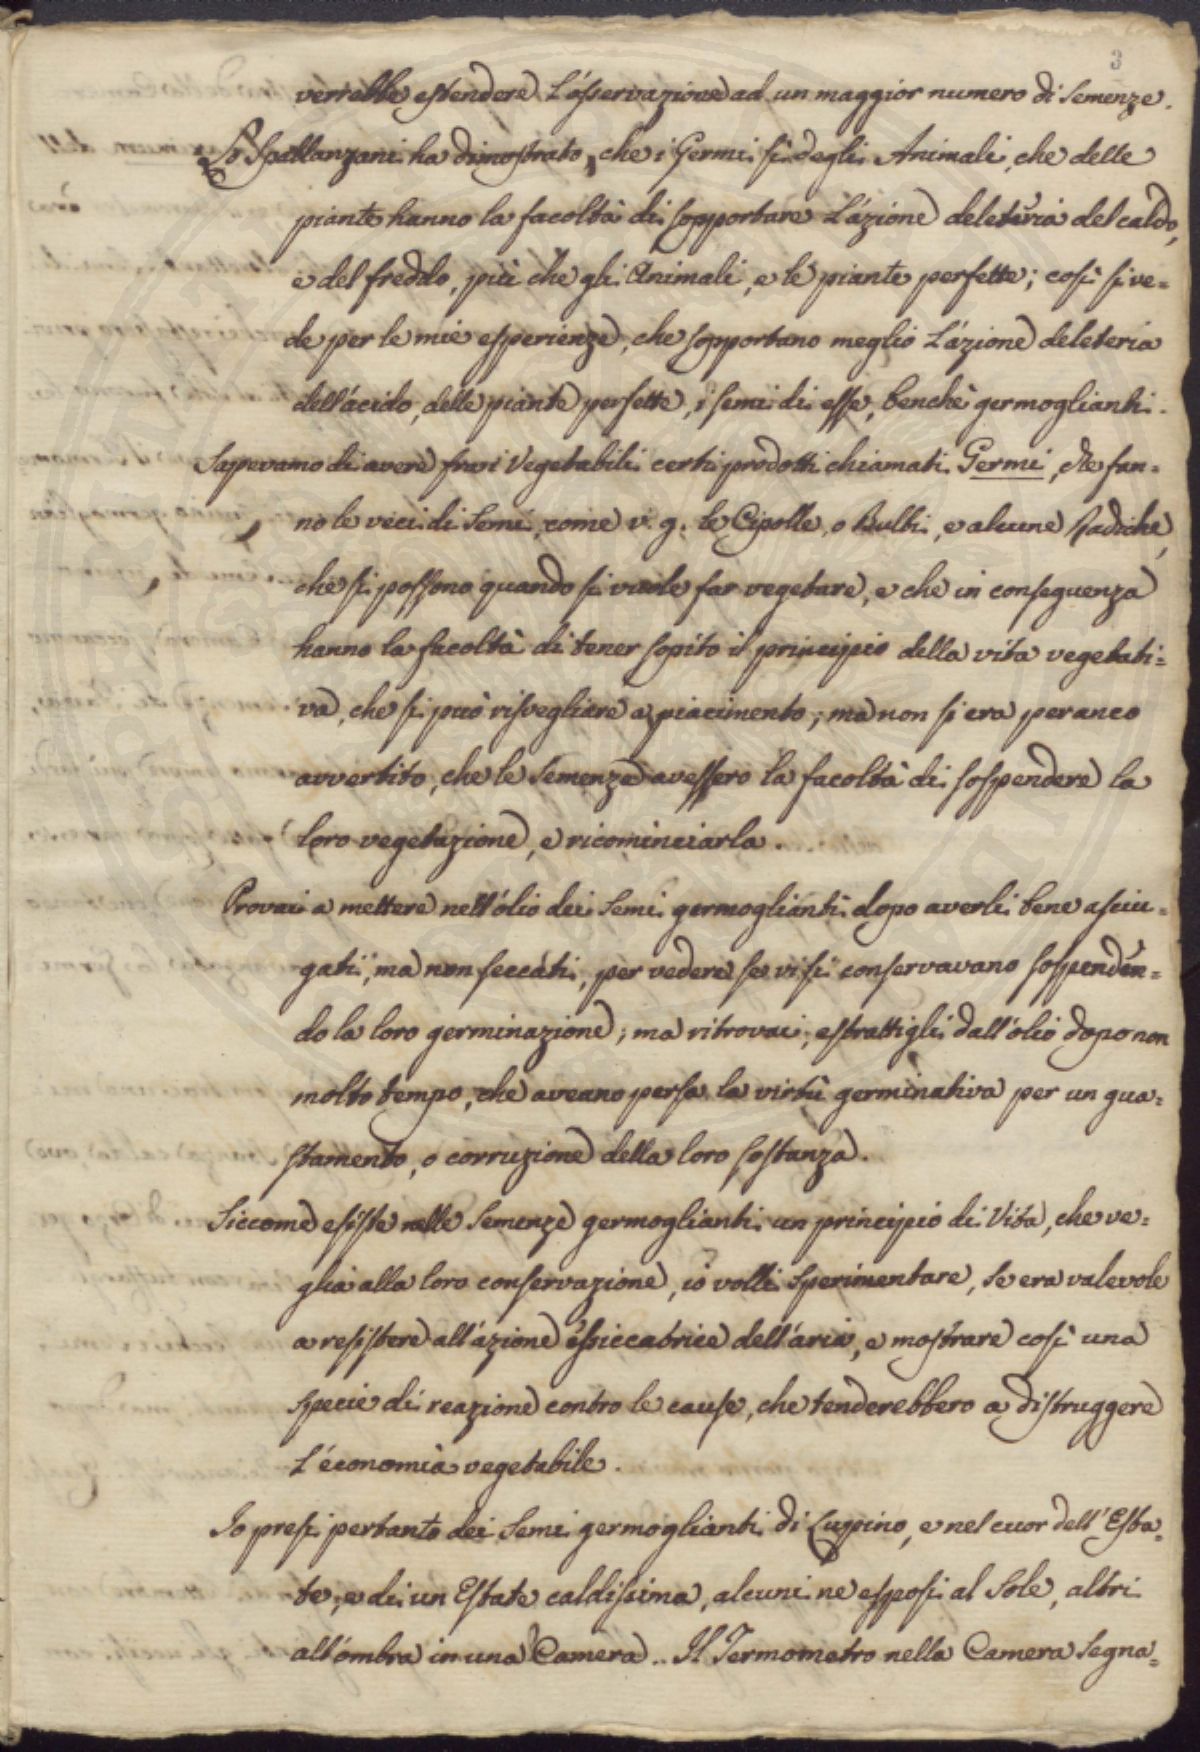 3
verrebbe estendere L'osservazione ad un maggior numero di Semenze.
Lo Spallanzani ha dimostrato, che i Germi sì degli Animali, che delle
piante hanno la facoltà di sopportare L'azione deleteria del caldo,
e del freddo, più che gli Animali, e le piante perfette; così si ve=
de per le mie esperienze, che sopportano meglio L'azione deleteria
dell'acido, delle piante perfette, i semi di esse, benchè germoglianti.
Sapevamo di avere fra i Vegetabili certi prodotti chiamati Germi, che fan=
no le veci di Semi, come v. g. le Cipolle, o Bulbi, e alcune Radiche,
che si possono quando si vuole far vegetare, e che in conseguenza
hanno la facoltà di tener sopito il principio della vita vegetati=
va, che si può risvegliare a piacimento; ma non si era peranco
avvertito, che le Semenze avessero la facoltà di sospendere la
loro vegetazione, e ricominciarla.
Provai a mettere nell'olio dei Semi germoglianti dopo averli bene asciu=
gati, ma non seccati, per vedere se vi si conservavano sospenden=
do la loro germinazione; ma ritrovai, estrattigli dall'olio dopo non
molto tempo, che aveano persa la virtù germinativa per un gua=
stamento, o corruzione della loro sostanza.
Siccome esiste nelle Semenze germoglianti un principio di Vita, che ve=
glia alla loro conservazione, io volli sperimentare, se era valevole
a resistere all'azione essiccatrice dell'aria, e mostrare così una
specie di reazione contro le cause, che tenderebbero a distruggere
L'economia vegetabile.
Io presi pertanto dei Semi germoglianti di Luppino, e nel cuor dell'Esta=
te, e di un Estate caldissima, alcuni ne esposi al Sole, altri
all'ombra in una Camera. Il Termometro nella Camera segna=